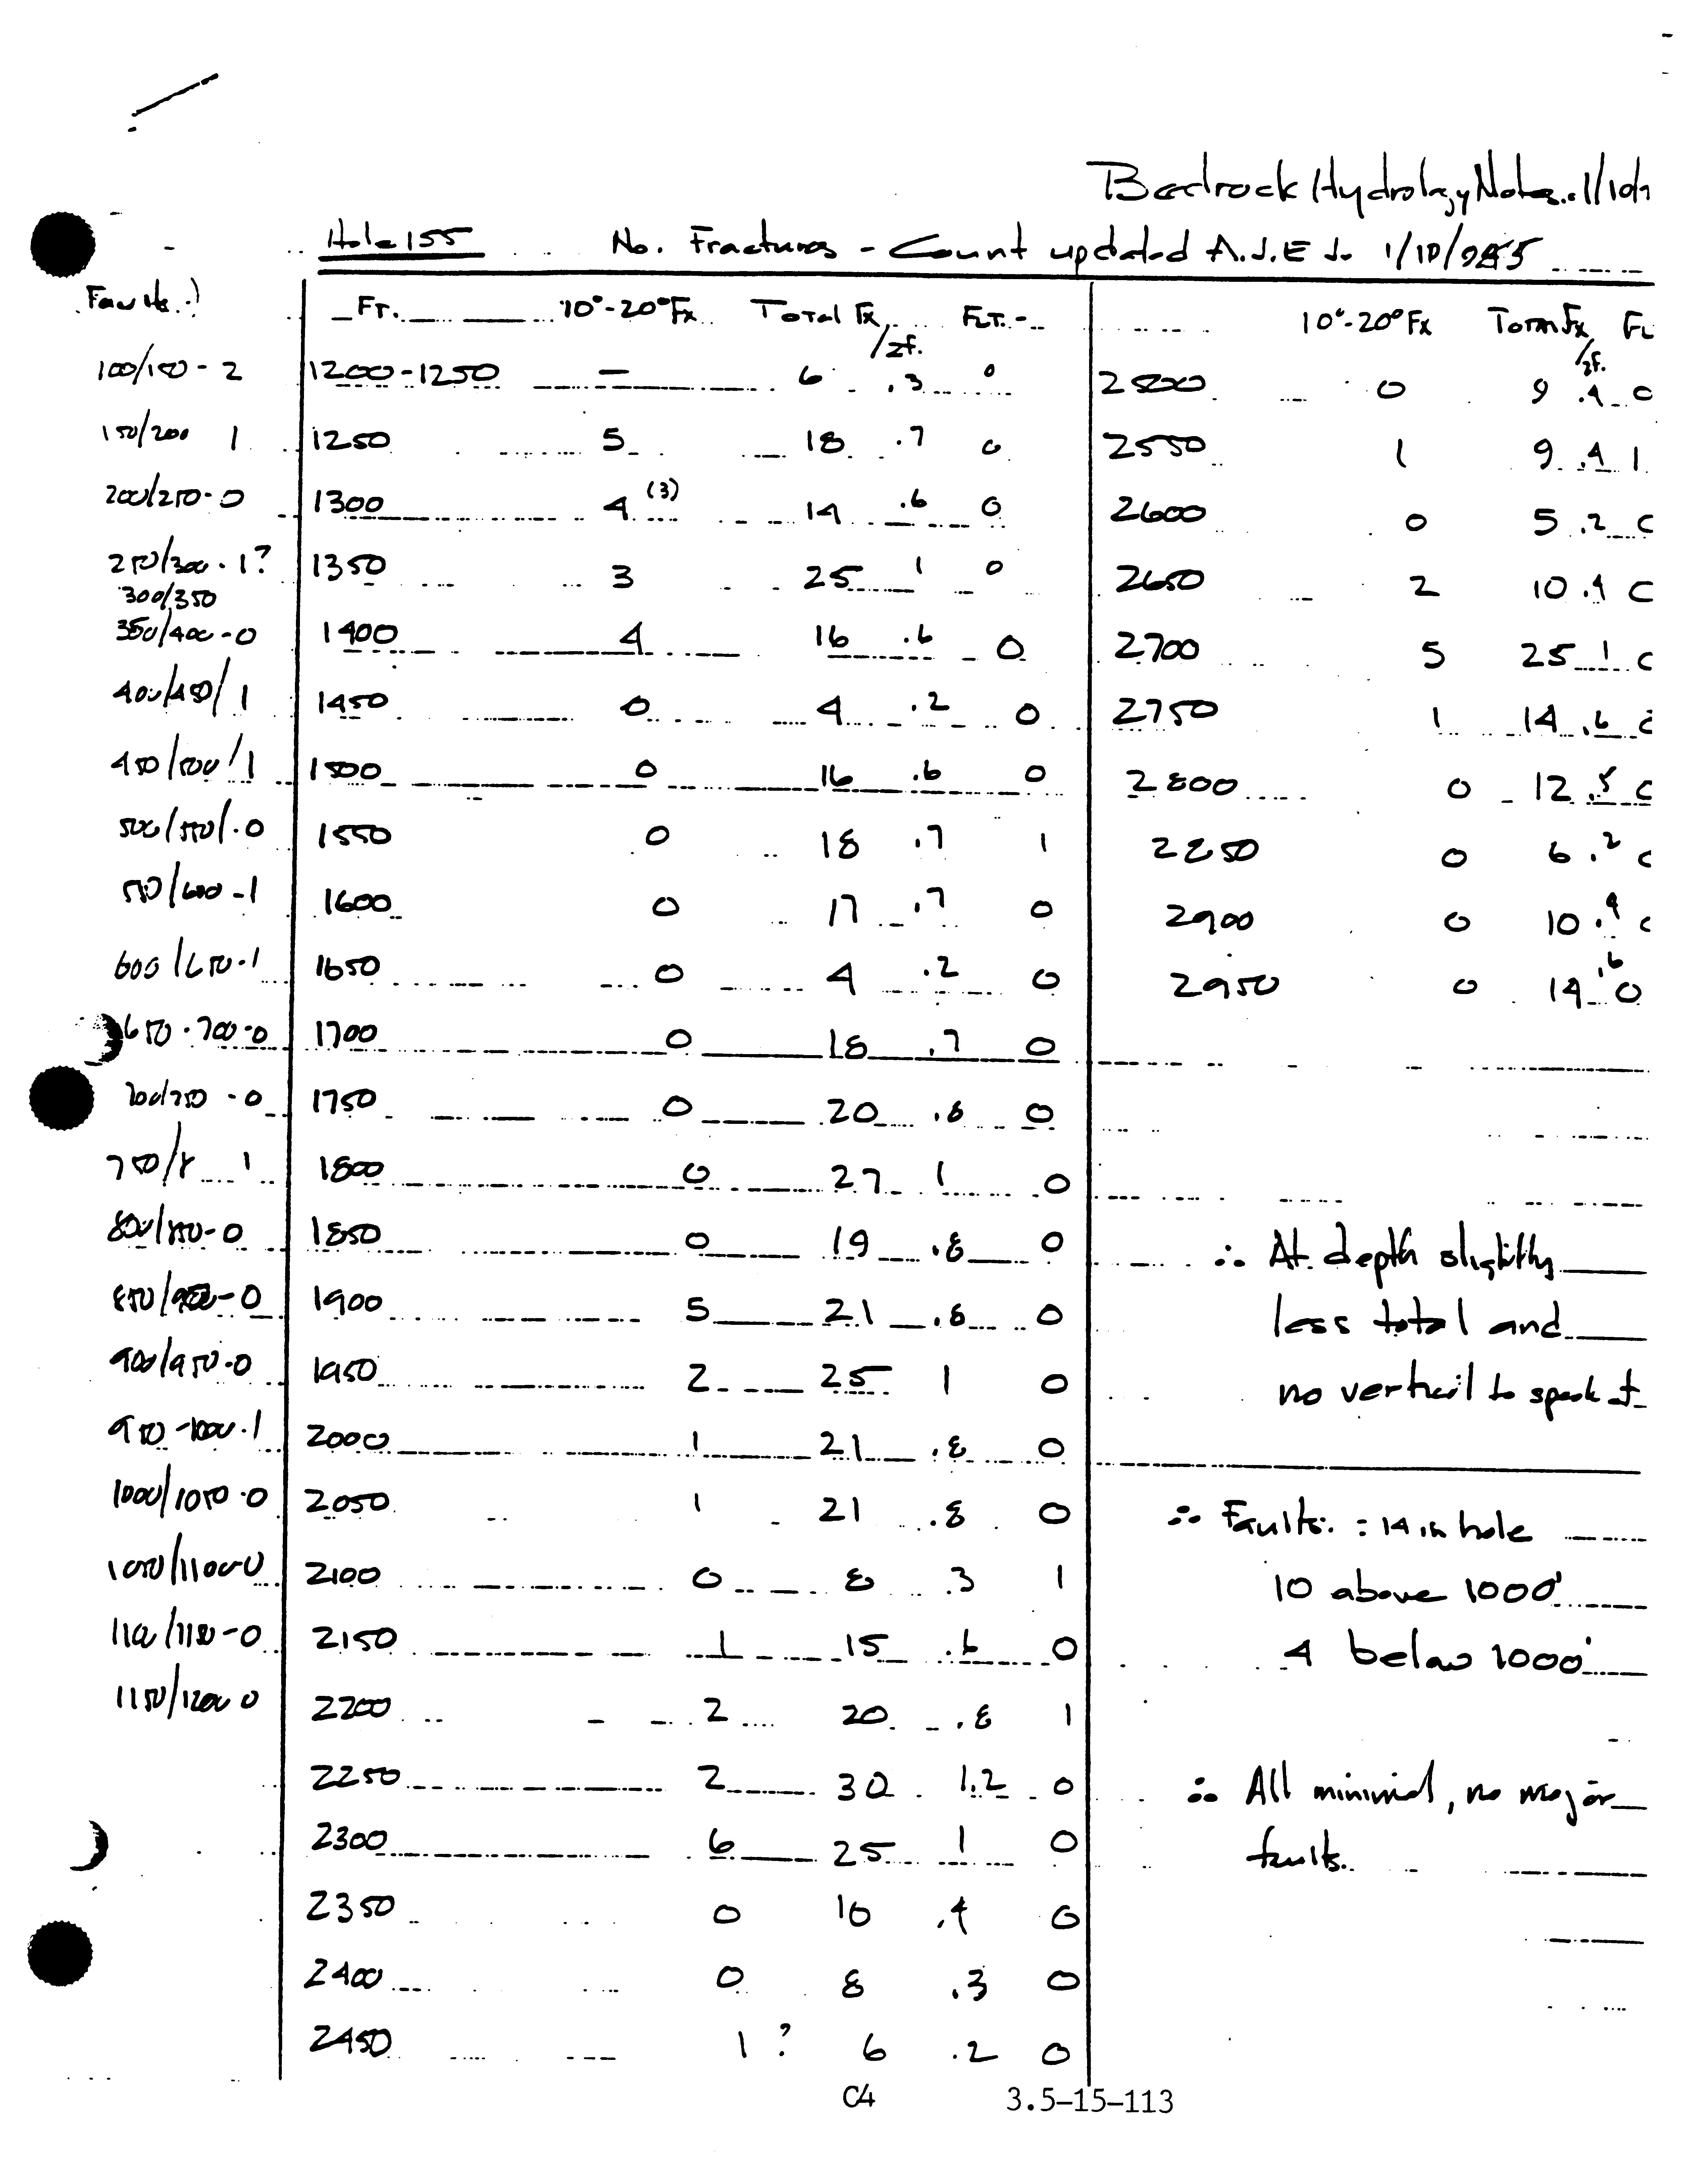 Bedrock Hydrology Notes
Hole 155 No. Fractures - Count updated A.J.E
Faults
Ft. 10°-20° Fx Total Fx /2f. FLT.-
10°-20° Fx Total Fx /2f. FL
100/150 - 2
150/200 1
200/250 - 0
250/300 - 1?
300/350
350/400 - 0
400/450/ 1
450/500/ 1
500/550/ - 0
550/600 - 1
600/650 - 1
650 - 700 - 0
700/750 - 0
750/8 1
800/850 - 0
850/900 - 0
900/950 - 0
950 - 1000 - 1
1000/1050 - 0
1050/1100 - 0
1100/1150 - 0
1150/1200 0
1200-1250 — 6 .3 0
1250 5 18 .7 0
1300 4 (3) 14 .6 0
1350 3 25 1 0
1400 4 16 .6 0
1450 0 4 .2 0
1500 0 16 .6 0
1550 0 18 .7 1
1600 0 17 .7 0
1650 0 4 .2 0
1700 0 18 .7 0
1750 0 20 .8 0
1800 0 27 1 0
1850 0 19 .8 0
1900 5 21 .8 0
1950 2 25 1 0
2000 1 21 .8 0
2050 1 21 .8 0
2100 0 8 .3 1
2150 1 15 .6 0
2200 2 20 .8 1
2250 2 30 1.2 0
2300 6 25 1 0
2350 0 10 .4 0
2400 0 8 .3 0
2450 1? 6 .2 0
2500 0 9 .4 0
2550 1 9 .4 1
2600 0 5 .2 0
2650 2 10 .4 0
2700 5 25 1 0
2750 1 14 .6 0
2800 0 12 .5 0
2850 0 6 .2 0
2900 0 10 .4 0
2950 0 14 .6 0
∴ At depth slightly
less total and
no vertical to speak of
∴ Faults: = 14 in hole
10 above 1000'
4 below 1000'
∴ All minimal, no major
faults.
C4 3.5-15-113